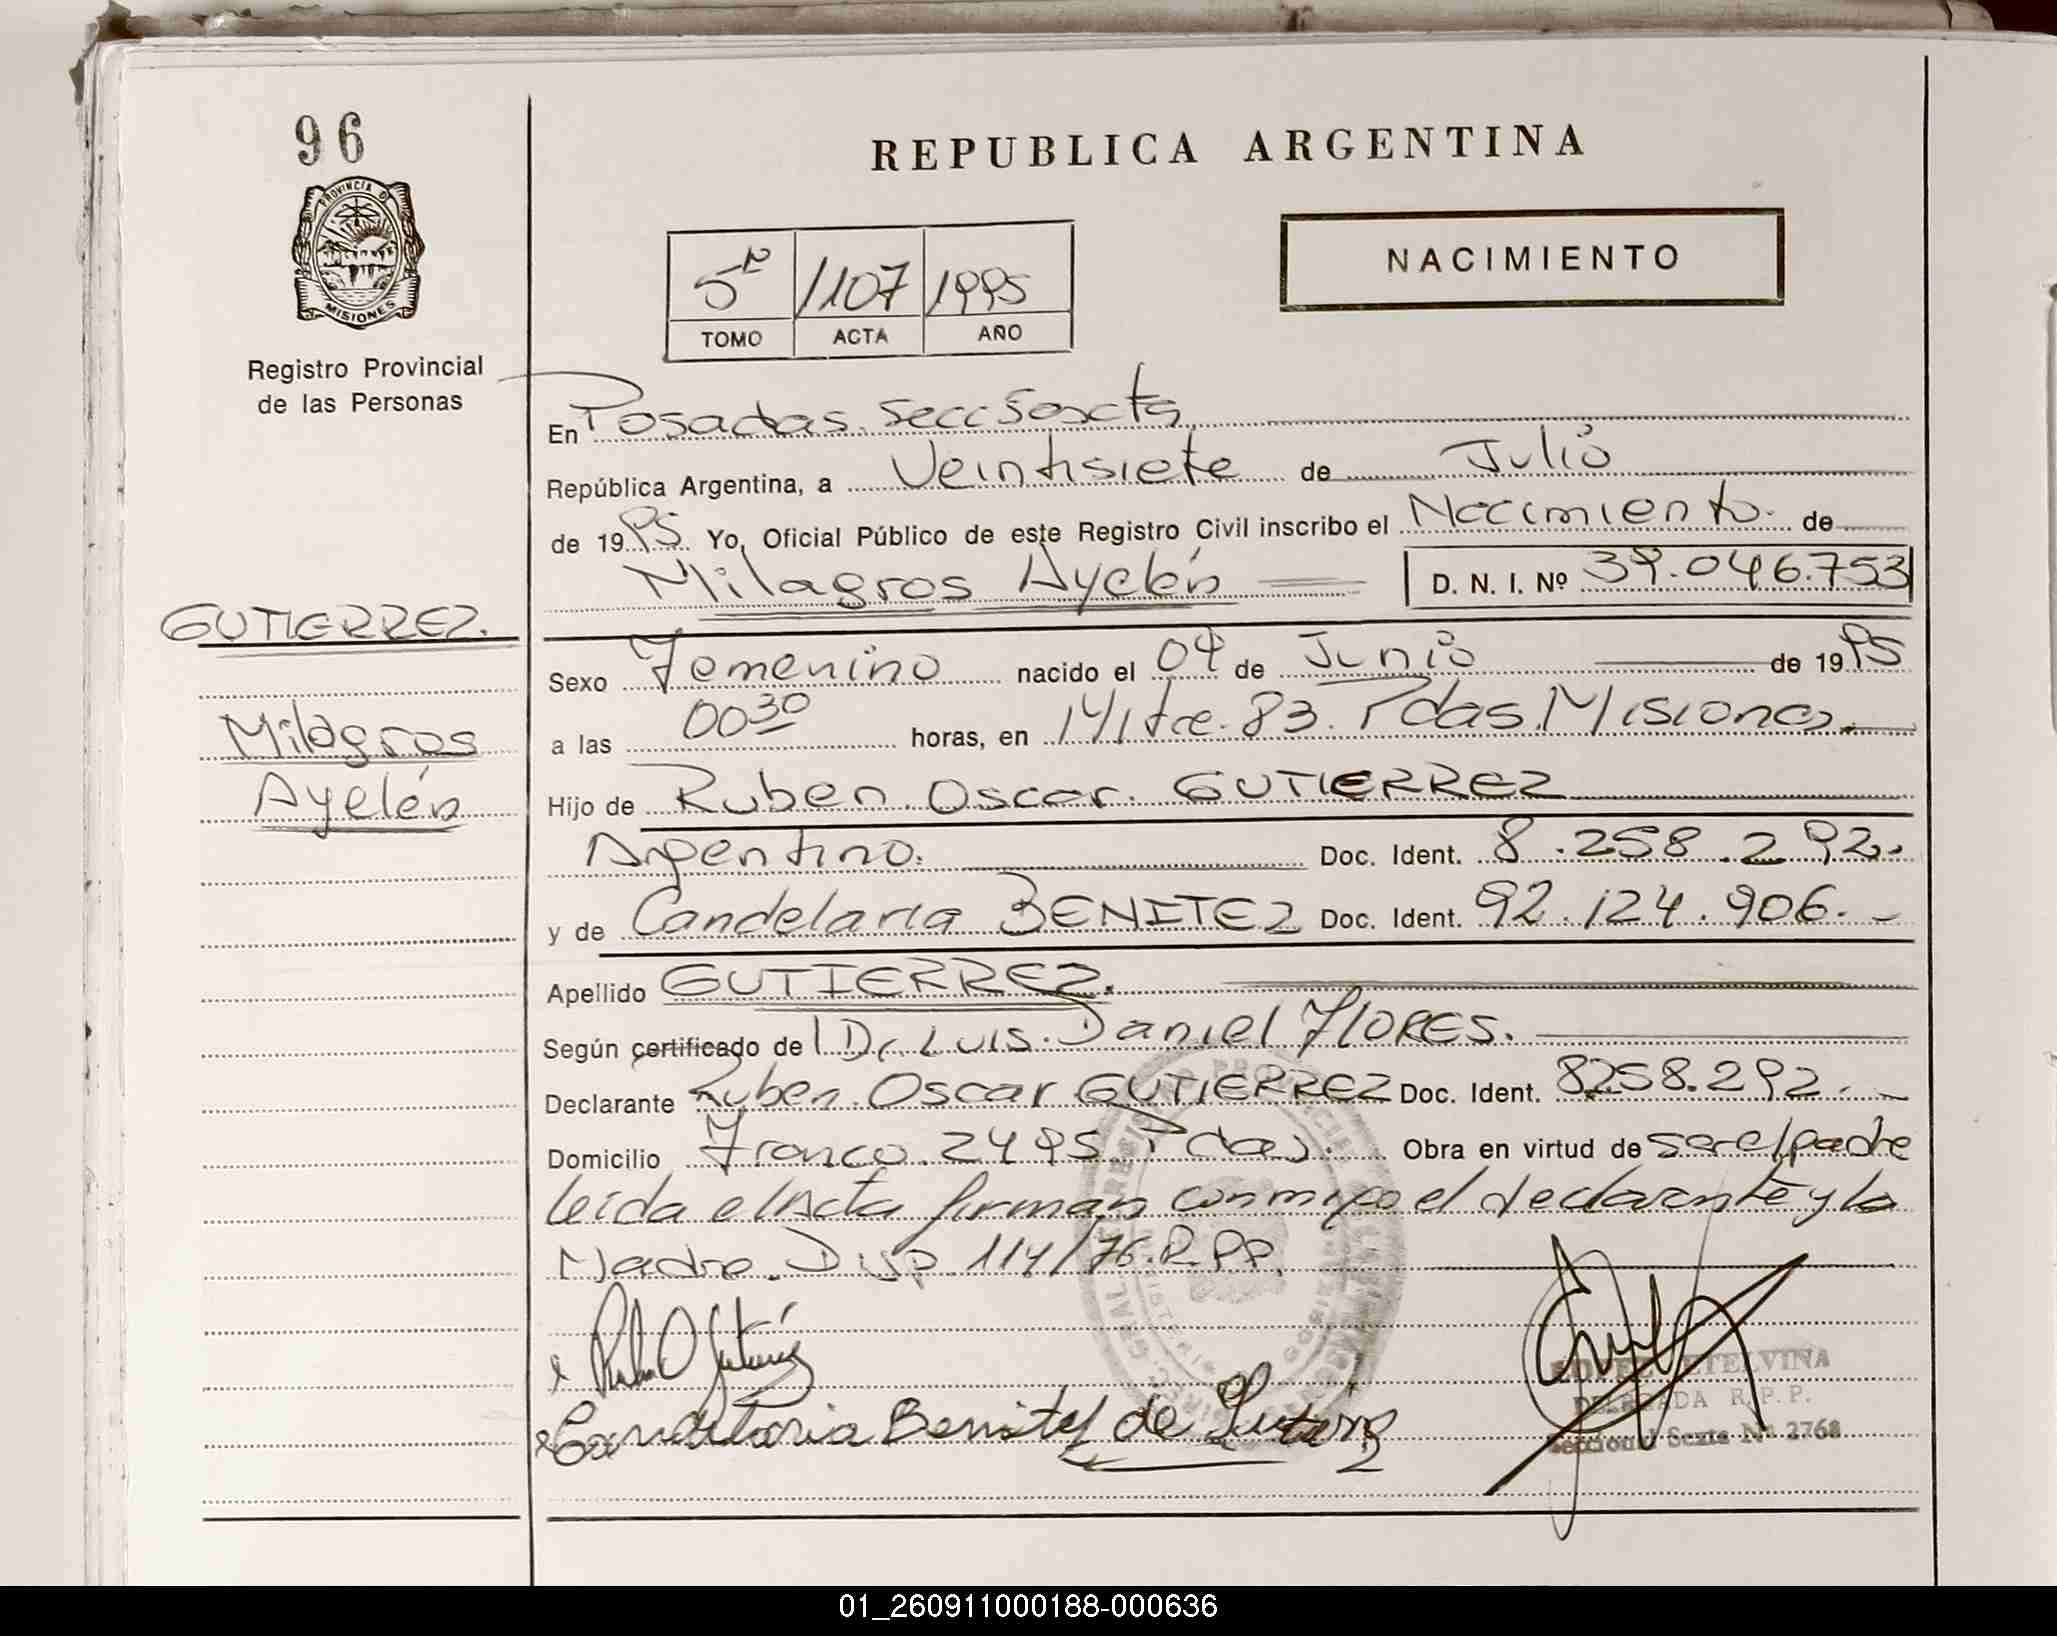 96
PROVINCIA DE
MISIONES
Registro Provincial
de las Personas
REPUBLICA ARGENTINA
NACIMIENTO
5º 1107 1995
TOMO ACTA AÑO
En Posadas. Secc Sexta
República Argentina, a Veintisiete de Julio
de 1995 Yo, Oficial Público de este Registro Civil inscribo el Nacimiento. de
Milagros Ayelén D. N. I. Nº 39.046.753
GUTIERREZ.
Milagros
Ayelén
Sexo Femenino nacido el 04 de Junio de 1995
a las 00 30 horas, en Mitre. 83. Pdas. Misiones.
Hijo de Ruben. Oscar. GUTIERREZ
Argentino. Doc. Ident. 8.258.292.
y de Candelaria BENITEZ Doc. Ident. 92.124.906.-
Apellido GUTIERREZ.
Según certificado de Dr. Luis. Daniel FLORES.
Declarante Ruben. Oscar GUTIERREZ Doc. Ident. 8258.292.
Domicilio Franco. 2495 Pdas. Obra en virtud de ser el padre
leida el Acta firman conmigo el declarante y la
Madre. Disp. 114/76.R.P.P.
Candelaria Benitez de
ETELVINA
DELEGADA R.P.P.
Seccional Sexta Nº 2768
01_260911000188-000636